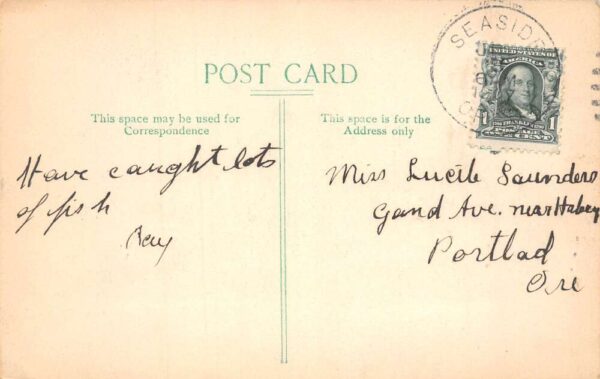 POST CARD
This space may be used for
Correspondence
This space is for the
Address only
Have caught lots
of fish
Ray
Miss Lucile Saunders
Gand Ave. near
Portlad
Ore
SEASIDE
UNITED STATES OF
AMERICA
1 FRANKLIN 1
POSTAGE
ONE CENT